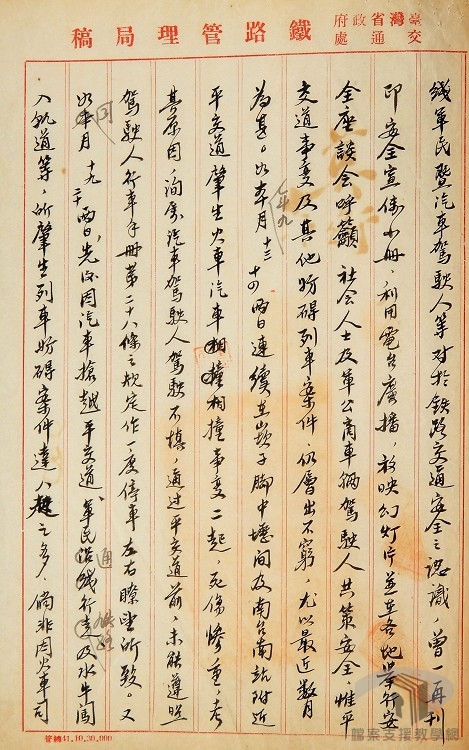 臺灣省政府交通處
鐵路管理局稿
綫軍民暨汽車駕駛人等對於鐵路交通安全之認識，曾一再刊
印安全宣傳小冊、利用電台廣播，放映幻灯片並在各地舉行安
全座談会呼籲社会人士及軍公商車輛駕駛人共策安全惟平
交道事变及其他妨碍列車案件，仍層出不窮，尤以最近数月
為甚。如本年七月十三十四兩日連續在崁子脚中壢間及南台南站附近
平交道肇生火車汽車相撞事变二起，死傷慘重，考
其原因，洵屬汽車駕駛人駕駛不慎，通过平交道前，未能遵照
駕駛人行車手冊第二十八條之規定作一度停車左右瞭望所致。又
如同月十九二十兩日，先後因汽車搶越平交道、軍民沿綫行走及水牛闖
入軌道等，所肇生列車妨碍案件達八起之多，倘非因火車司
管總41.10.30.000
檔案支援教學網